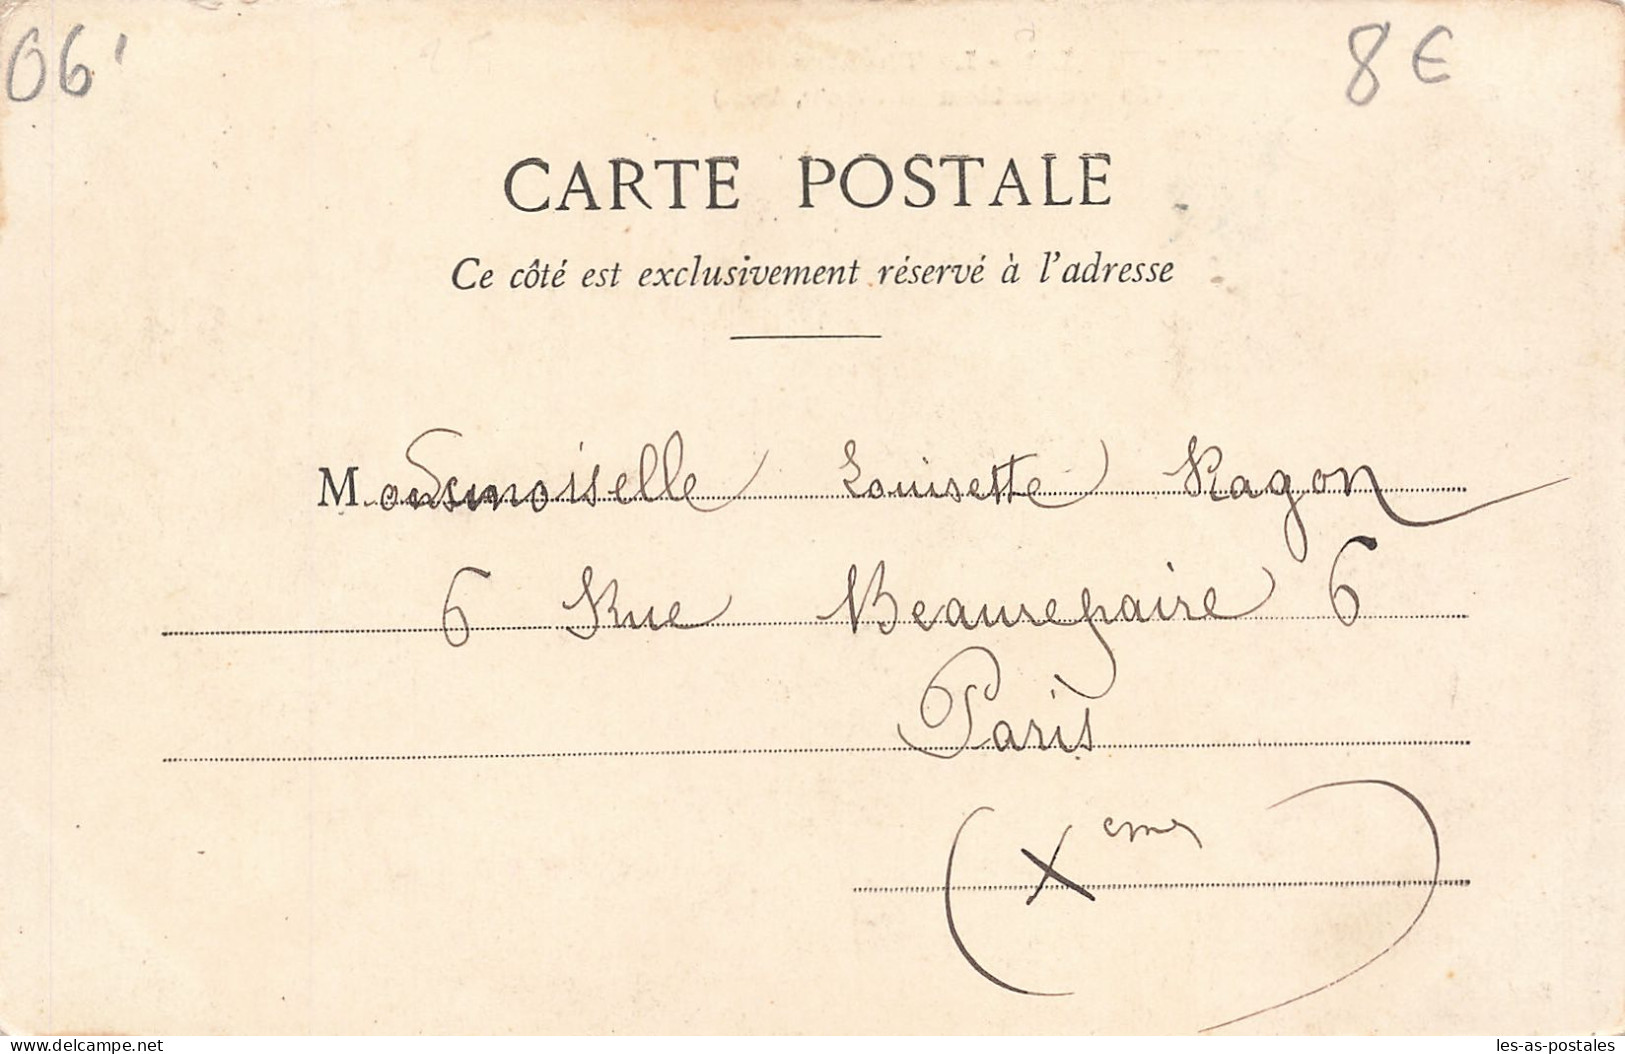 06'
8€
CARTE POSTALE
Ce côté est exclusivement réservé à l'adresse
Mademoiselle Louisette Ragon
6 Rue Beaurepaire 6
Paris
(Xeme)
delcampe.net
les-as-postales